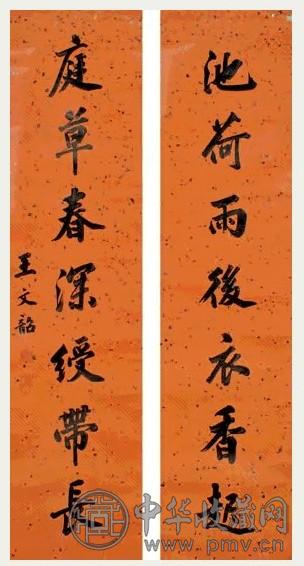 池荷雨後衣香起
庭草春深綬帶長
王文韶
中华收藏网
www.pmv.cn